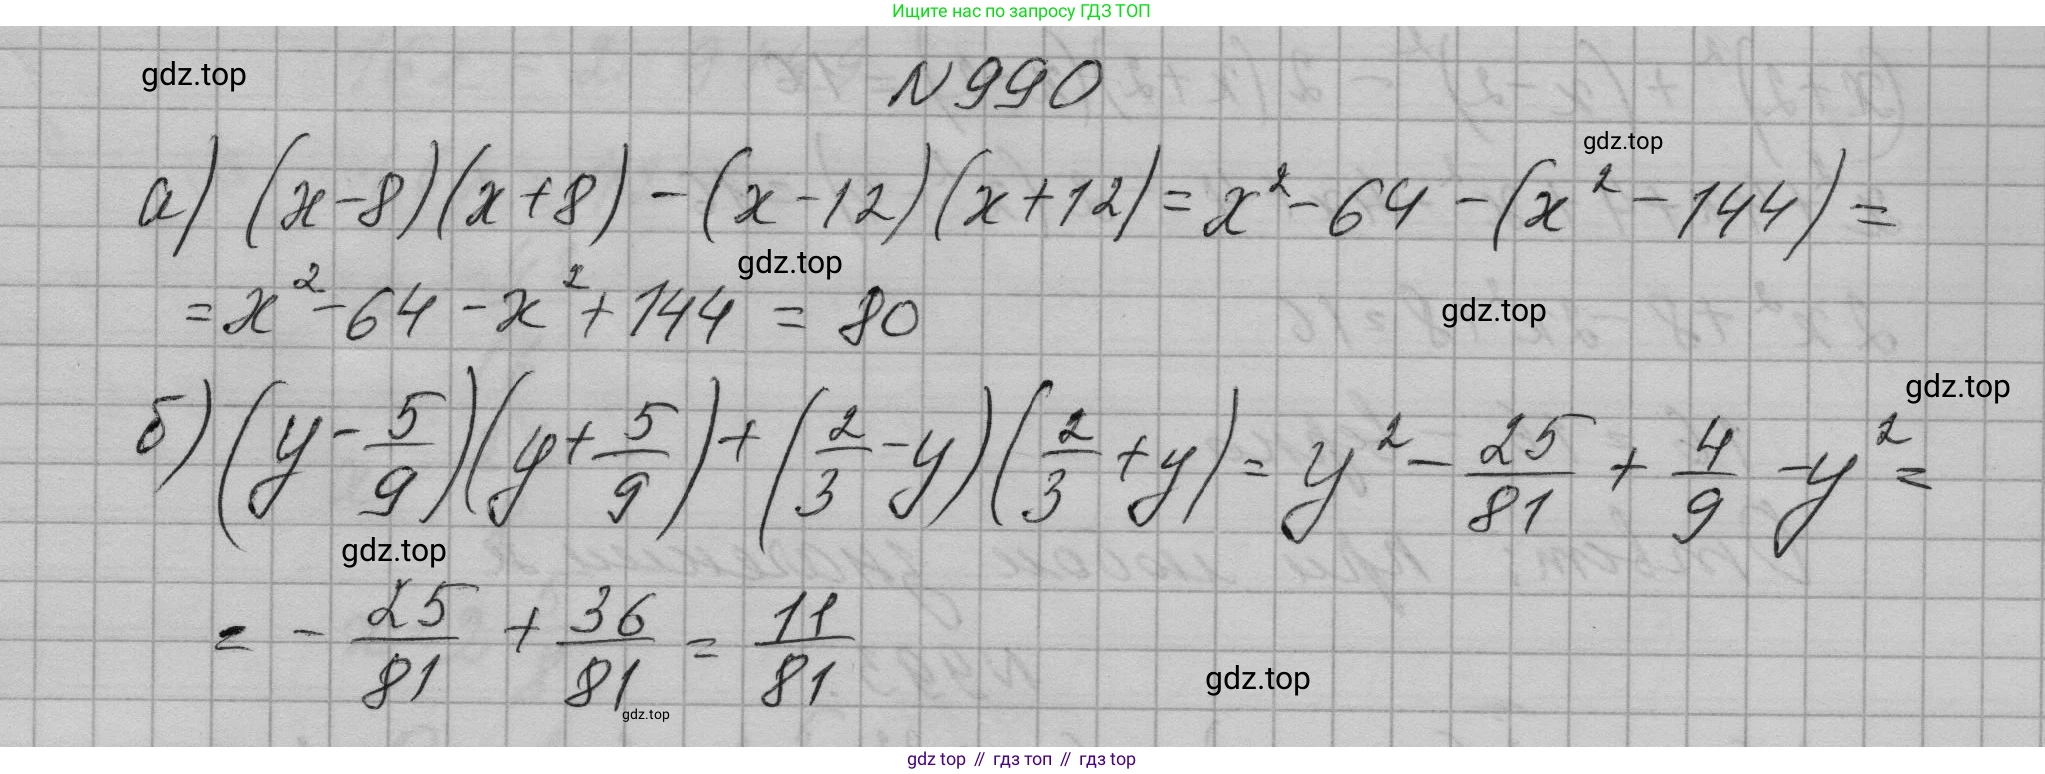 Ищите нас по запросу ГДЗ ТОП
gdz.top
N990
gdz.top
а) (x-8)(x+8)-(x-12)(x+12)=x²-64-(x²-144)=
gdz.top
=x²-64-x²+144=80
gdz.top
gdz.top
б) (y-5/9)(y+5/9)+(2/3-y)(2/3+y)=y²-25/81+4/9-y²=
gdz.top
=-25/81+36/81=11/81
gdz.top
gdz.top
gdz top // гдз топ // gdz top